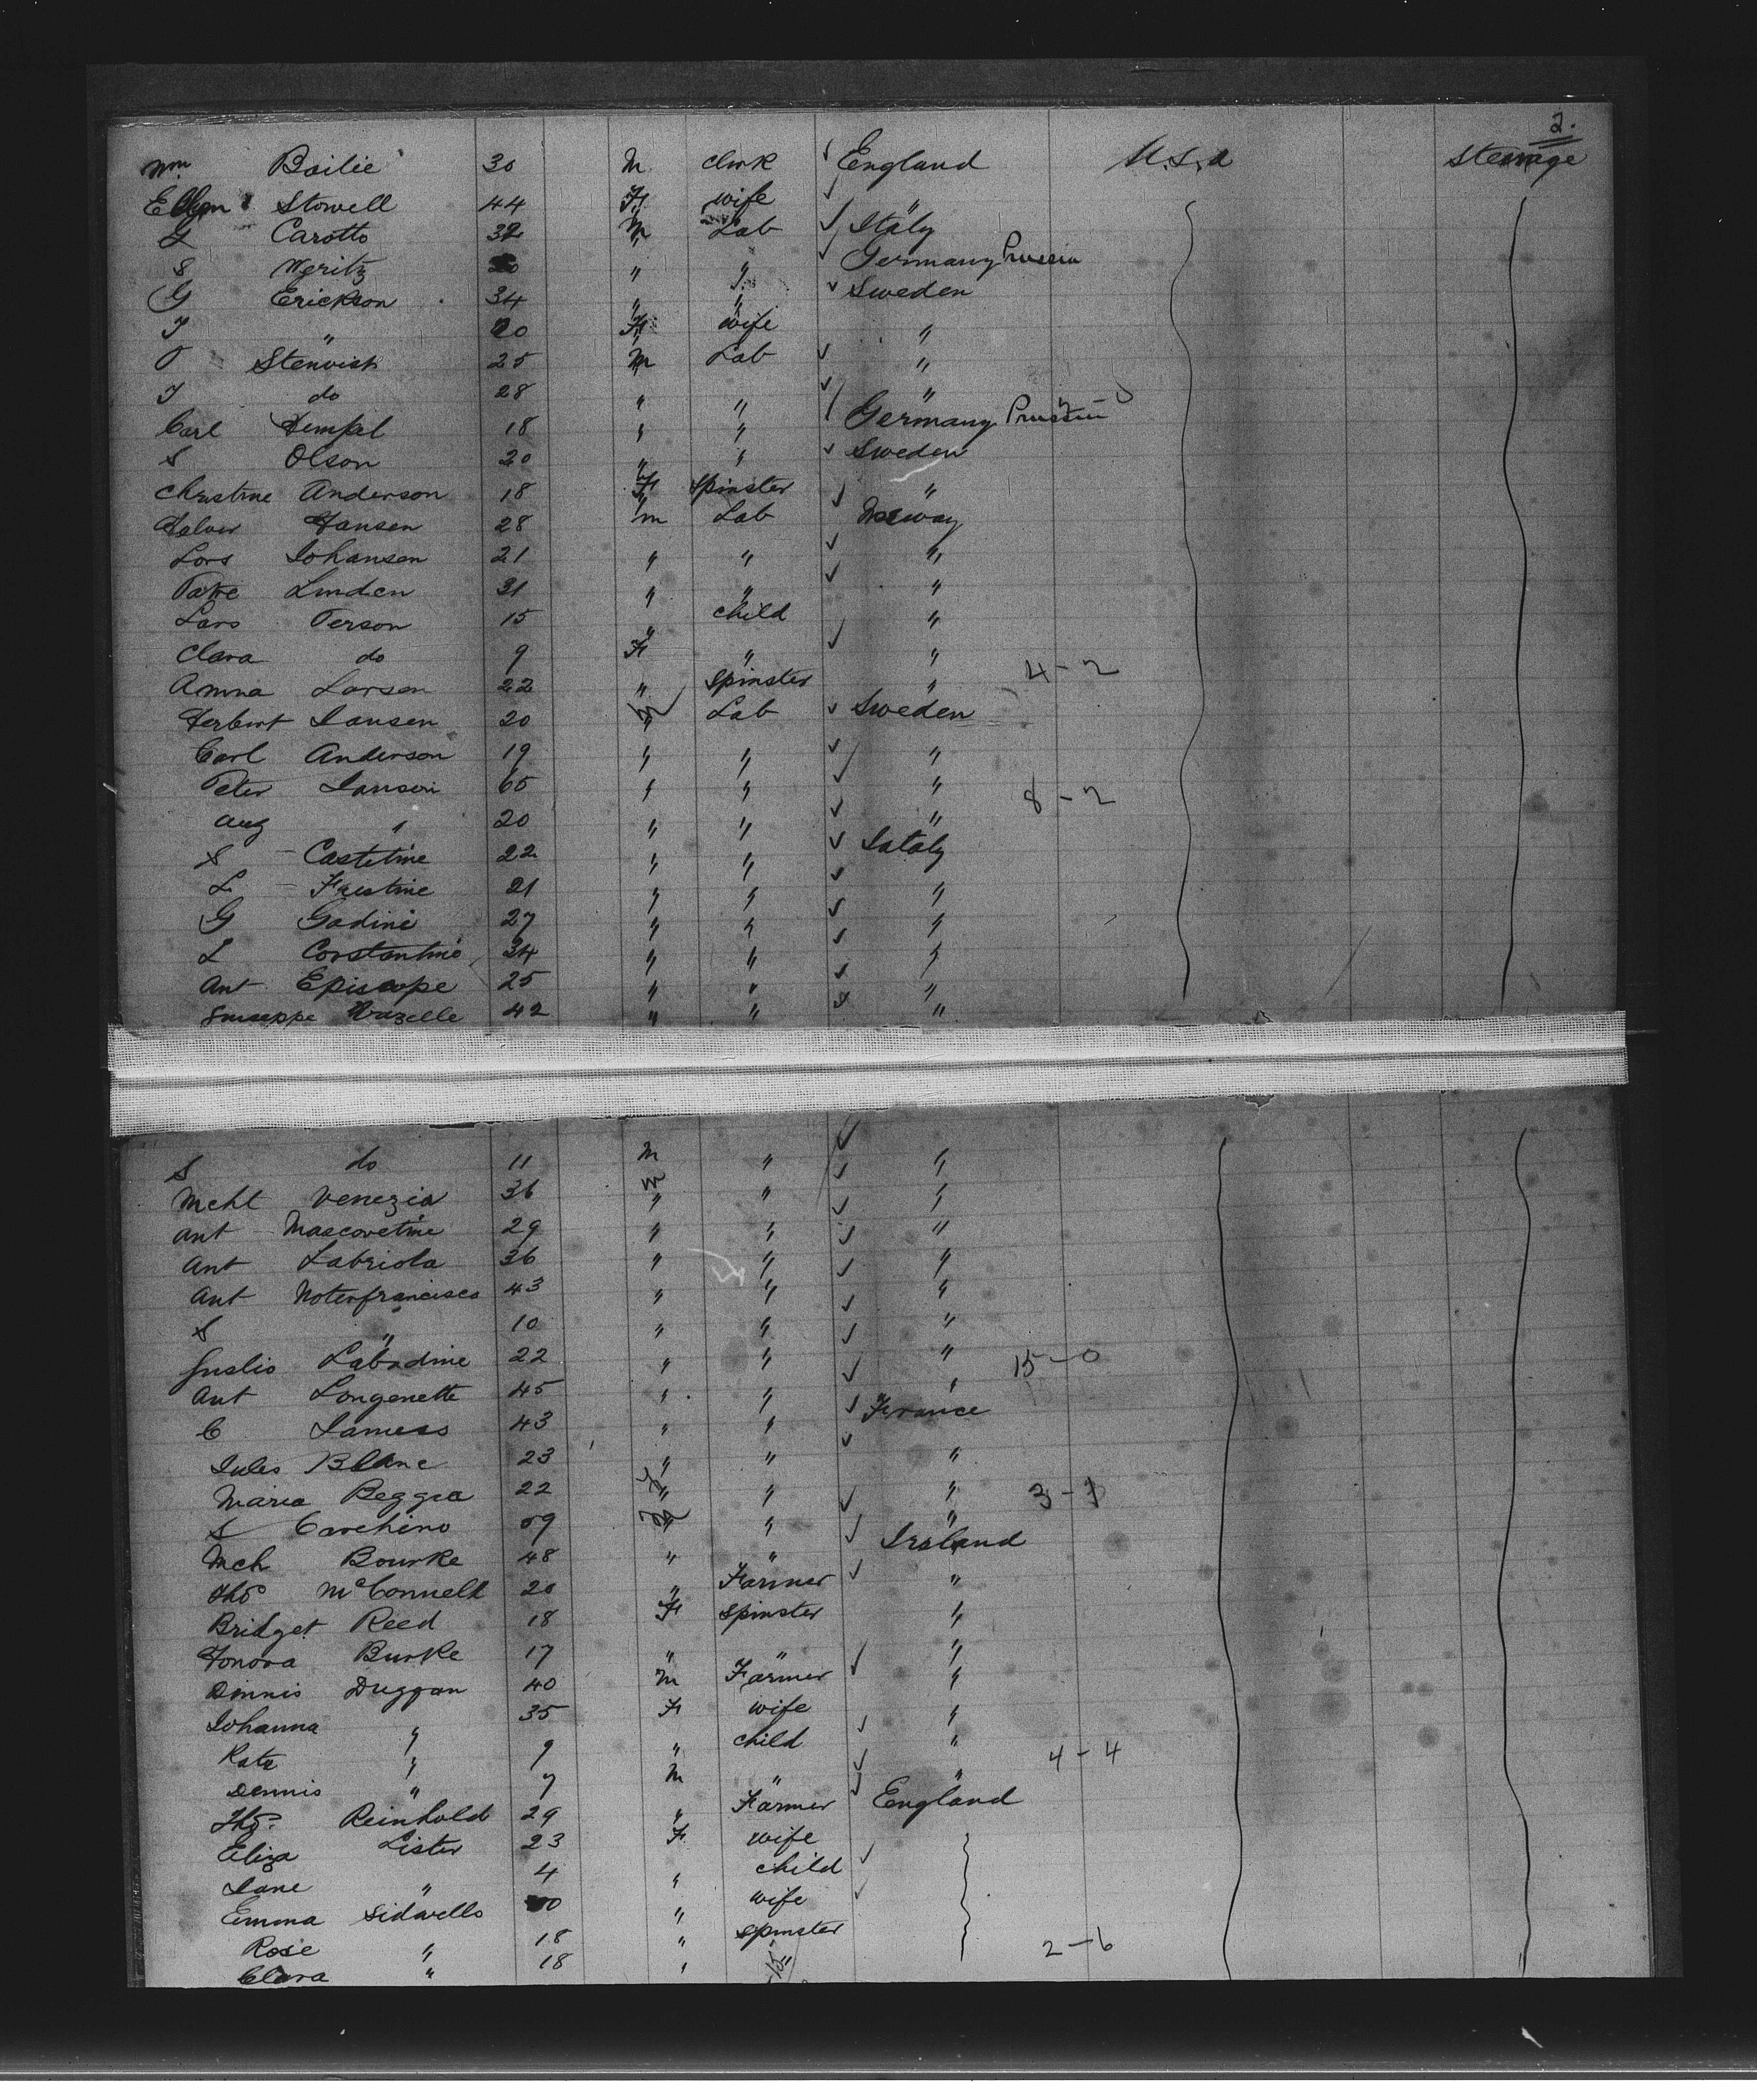 2.
Wm Bailie 30 M clerk England U.S.A Steerage
Ellen Stowell 44 F wife "
L Carotto 32 M Lab Italy
S Weritz " " Germany Prussia
G Erickson 34 " " Sweden
J " 20 F wife "
O Stenvick 25 M Lab "
J do 28 " " "
Carl Hempel 18 " " Germany Prussia
S Olson 20 " " Sweden
Christine Anderson 18 F spinster "
Halver Hansen 28 m Lab Norway
Lars Johansen 21 " " "
Linden 31 " " "
Lars Person 15 " child "
Clara do 9 F " "
Amna Larsen 22 " spinster " 4-2
Herbert Jansen 20 M Lab Sweden
Carl Anderson 19 " " "
Peter Janson 65 " " " 8-2
Aug " 20 " " "
S Castetine 22 " " Sataly
L Faustine 21 " " "
G Gadine 27 " " "
L Costantino 34 " " "
Ant Episcope 25 " " "
Guiseppe 42 " " "
S do 11 M " "
Mcht Venezia 36 M " "
Ant Mascovetine 29 " " "
Ant Labriola 36 " " "
Ant Noterfrancisco 43 " " "
S " 10 " " "
Guslio Labadine 22 " " " 15-0
Ant Longenette 45 " " "
C Jamess 43 " " France
Jules Blanc 23 " " "
Maria Beggia 22 F " " 3-1
S Carchino 59 M " "
Mch Bourke 48 " " Ireland
Tho McConnell 20 " Farmer "
Bridget Reed 18 F spinster "
Honora Burke 17 " " "
Dinnis Duggan 40 M Farmer "
Johanna " 35 F wife "
Kate " 9 " child " 4-4
Dennis " 7 M " "
Tho. Reinhold 29 " Farmer England
Eliza Lister 23 F wife
Jane " 4 " child
Emma Sidwells " wife
Rose " 18 " spinster 2-6
Clara " 18 " "